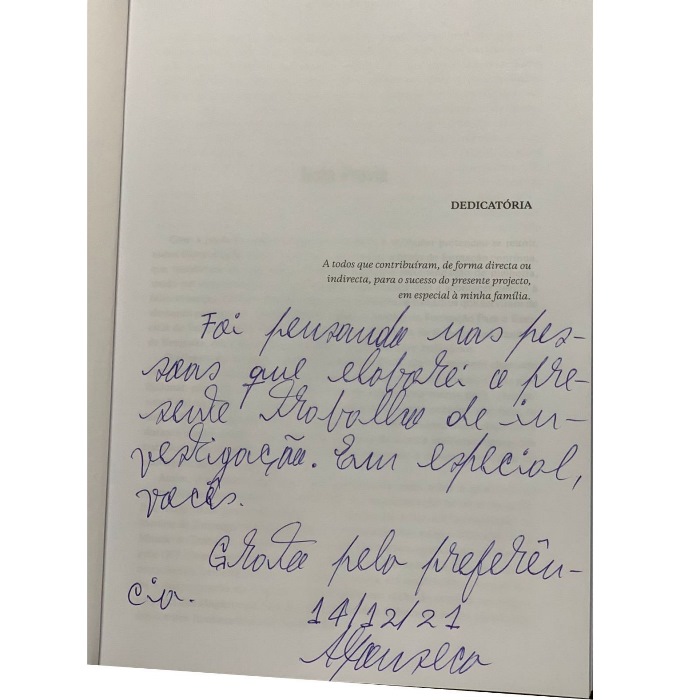 DEDICATÓRIA
A todos que contribuíram, de forma directa ou
indirecta, para o sucesso do presente projecto,
em especial à minha família.
Foi pensando nas pes-
soas que elaborei o pre-
sente trabalho de in-
vestigação. Em especial,
vocês.
Grata pela preferên-
cia.
14/12/21
AFonseca